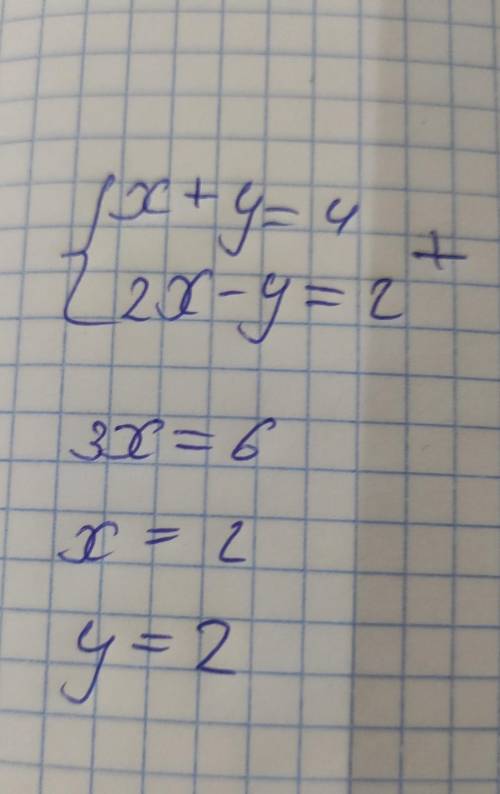 x + y = 4
2x - y = 2 +
3x = 6
x = 2
y = 2